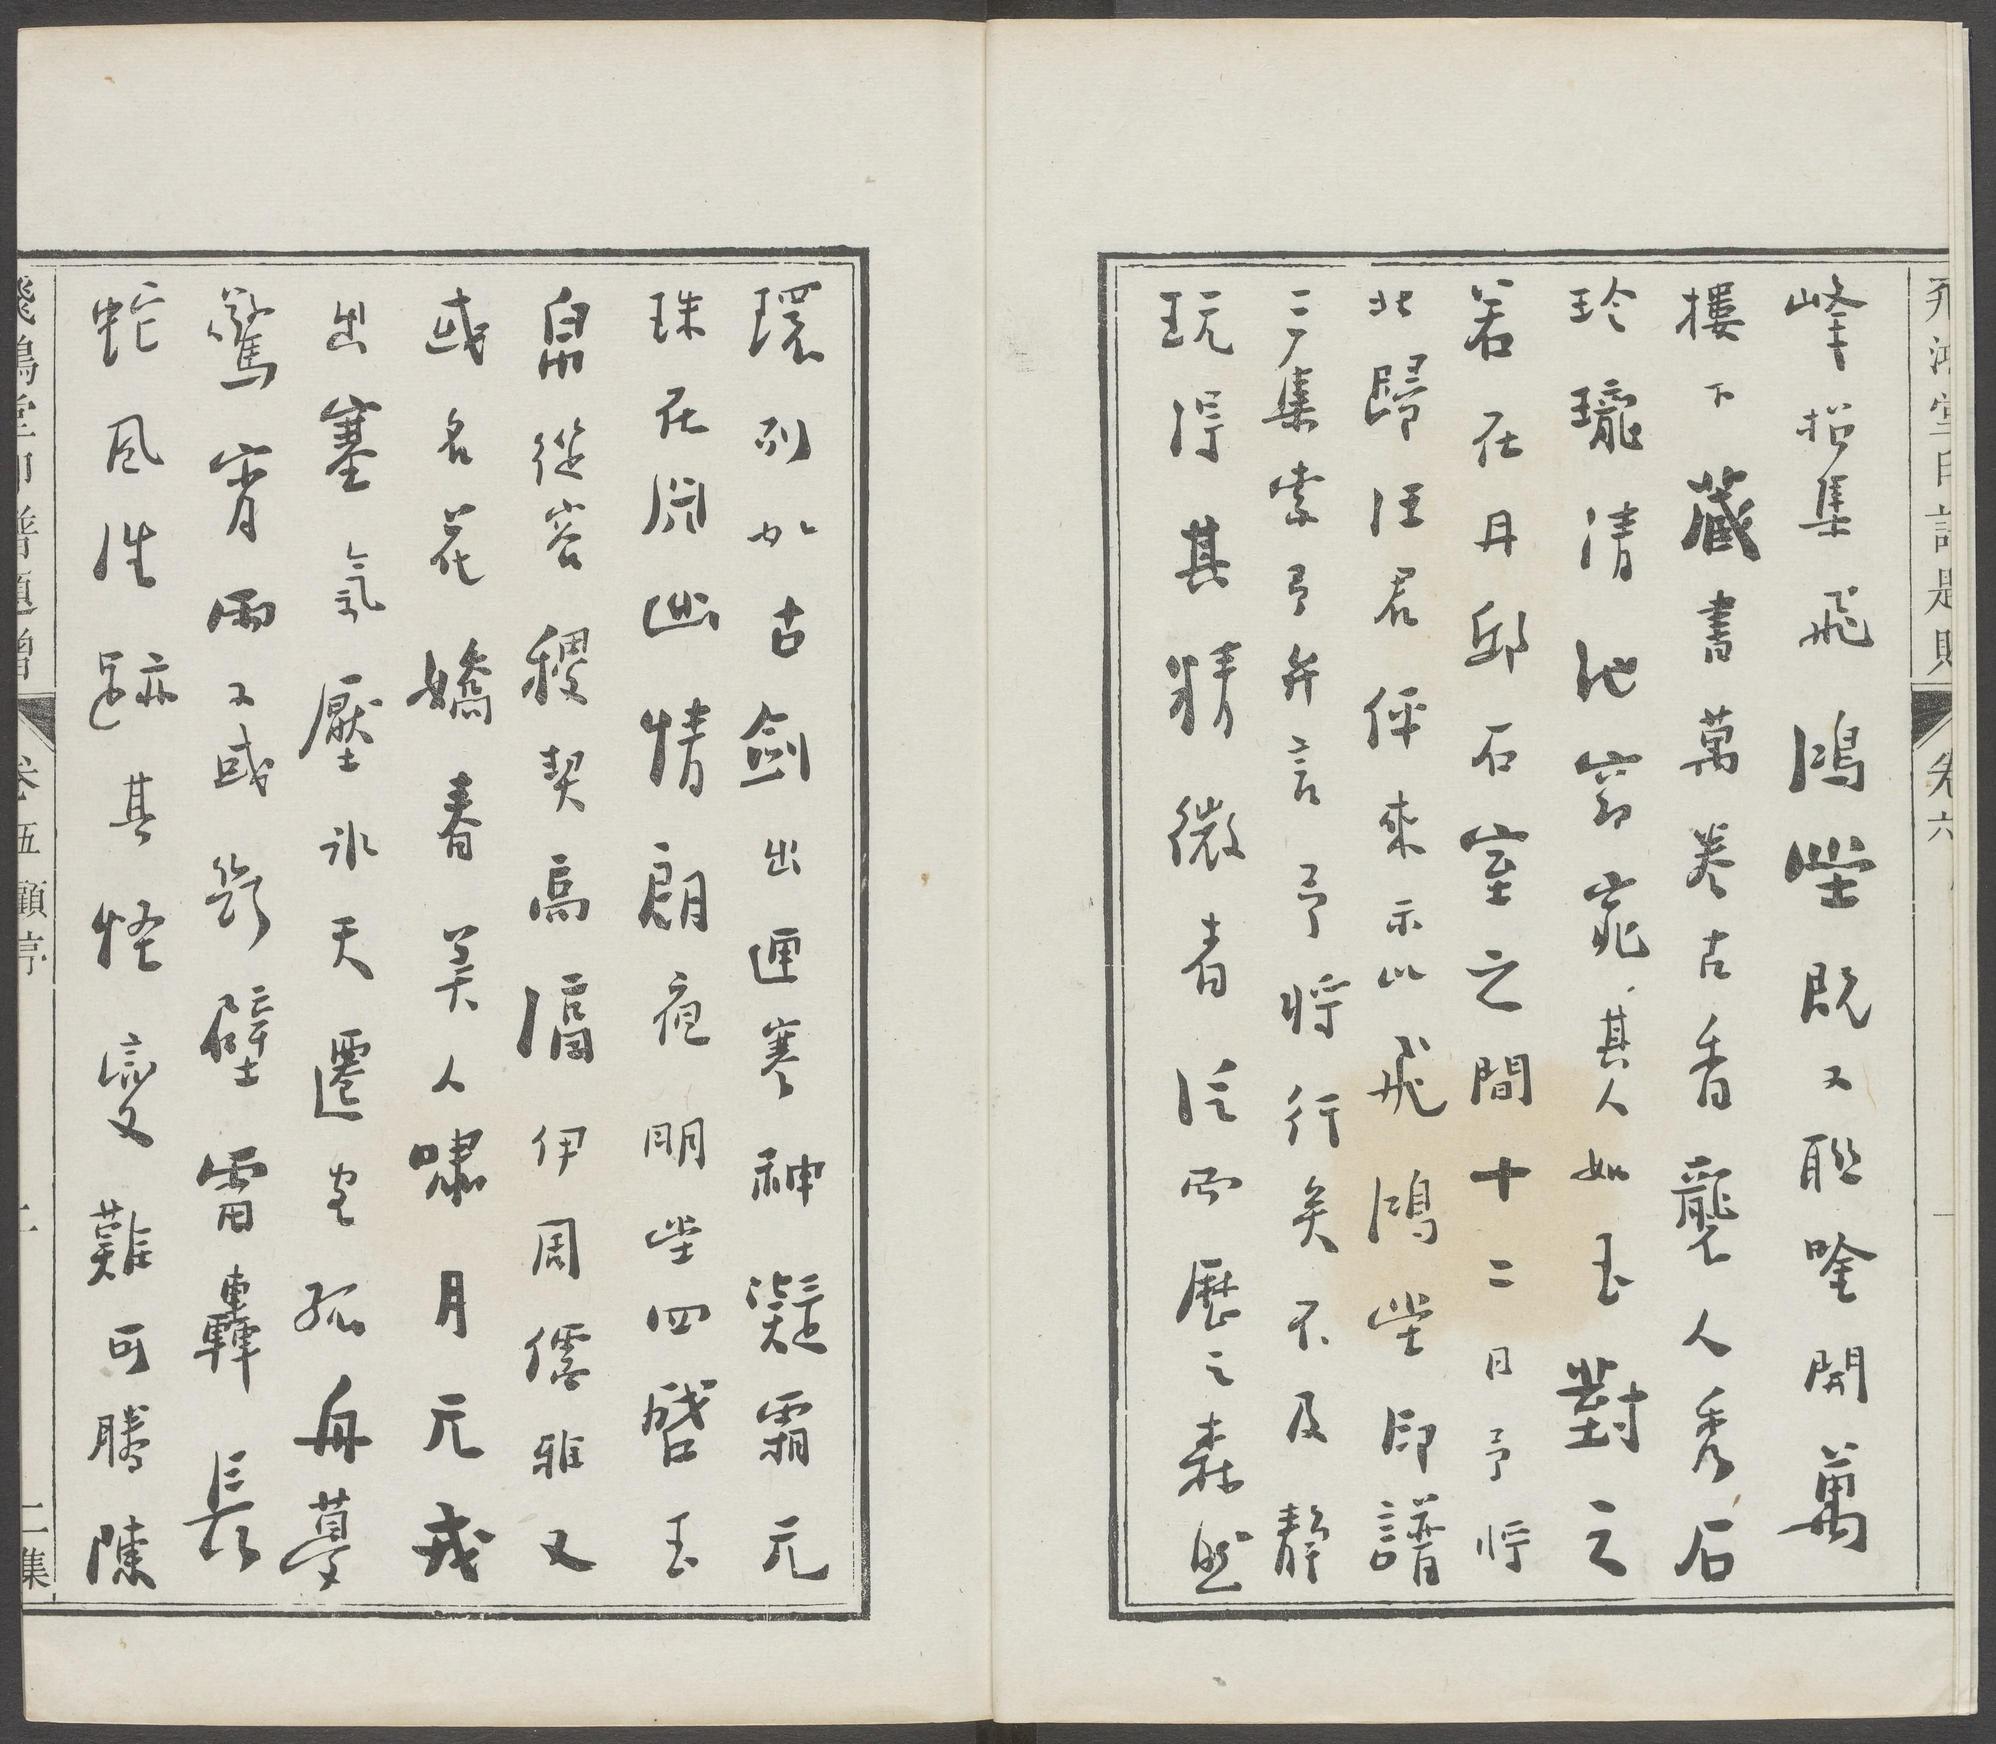 峰招集飛鴻堂既又聯吟開萬
樓下藏書萬卷古香襲人秀石
玲瓏清池窈窕其人如玉對之
若在丹邱石室之間十二日予將
北歸汪君伻來示以飛鴻堂印譜
三集索弓弁言予將行矣不及靜
玩得其精微者泛而歷之森然
環列如古劍出匣寒神凝霜元
珠在淵幽情朗夜明堂四啓玉
帛從容稷契高偊伊周儒雅又
或名花嬌春美人嘯月元戎
出塞氣壓氷天遷客孤舟夢
驚宵雨又或斫壁雷轟長
蛇風性跡其怪變難可勝陳
飛鴻堂印譜題贈 卷五 顧序 二 二集